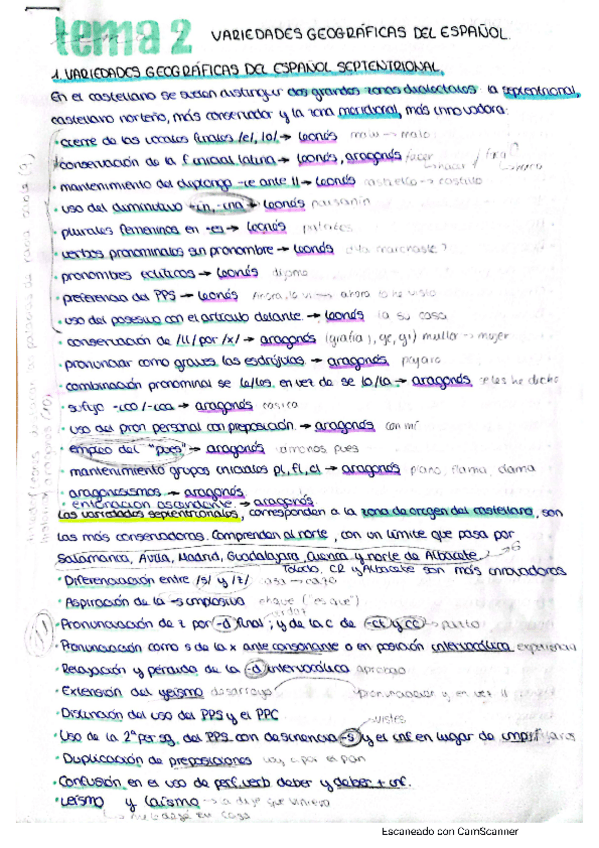 tema 2 VARIEDADES GEOGRÁFICAS DEL ESPAÑOL.
1. VARIEDADES GEOGRÁFICAS DEL ESPAÑOL SEPTENTRIONAL.
En el castellano se suelen distinguir dos grandes zonas dialectales: la septentrional,
castellano norteño, más conservador y la zona meridional, más innovadora:
· cierre de las vocales finales /e/, /o/ → leonés malu → malo
· conservación de la f inicial latina → leonés, aragonés facer hacer /
· mantenimiento del diptongo -ie ante ll → leonés castiello → castillo
· uso del diminutivo -ín, -ina → leonés
· plurales femeninos en -es → leonés
· verbos pronominales sin pronombre → leonés marchaste?
· pronombres enclíticos → leonés díjome
· preferencia del PPS → leonés Ahora lo vi → ahora lo he visto
· uso del posesivo con el artículo delante → leonés la su casa
· conservación de /ll/ por /x/ → aragonés (grafía j, ge, gi) muller → mujer
· pronunciar como graves las esdrújulas → aragonés pajaro
· combinación pronominal se le/les en vez de se lo/la → aragonés se les he dicho
· sufijo -ico /-ica → aragonés casica
· uso del pron personal con preposición → aragonés con mí
· empleo del "pues" → aragonés vámonos pues
· mantenimiento grupos iniciales pl, fl, cl → aragonés plano, flama, clama
· aragonesismos → aragonés
· entonación ascendente → aragonés
Las variedades septentrionales, corresponden a la zona de origen del castellano, son
las más conservadoras. Comprenden al norte, con un límite que pasa por
Salamanca, Ávila, Madrid, Guadalajara, Cuenca y norte de Albacete.
Toledo, CR y Albacete son más innovadoras
· Diferenciación entre /s/ y /z/ casa → caza
· Aspiración de la -s implosiva ("es que")
· Pronunciación de z por -d final; y de la c de -ct y cc →
· Pronunciación como s de la x ante consonante o en posición intervocálica experiencia
· Relajación y pérdida de la -d intervocálica
· Extensión del yeísmo desarroyo pronunciación y en vez ll
· Distinción del uso del PPS y el PPC
· Uso de la 2ª per sg. del PPS con desinencia -s y el inf en lugar de imper
· Duplicación de preposiciones voy a por el pan
· Confusión en el uso de perf. verb deber y deber + inf.
· Leísmo y laísmo → a
Escaneado con CamScanner